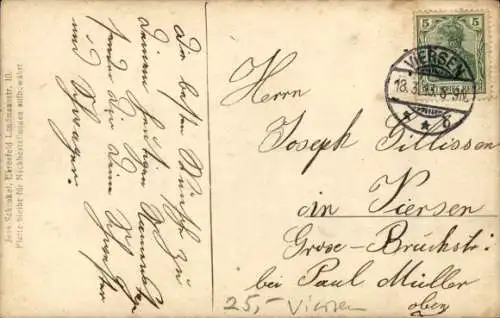 Die besten Wünsche zu
Deinem heutigen Namenstag
sendet dir deine
und Schwager.
Jos. Schinkel, Ehrenfeld Landmannstr. 10.
Platte bleibt für Nachbestellungen aufbewahrt
5
VIERSEN
18.3.
Herrn
Joseph Gillissen
in Viersen
Grose-Bruchstr:
bei Paul Müller
oben
25,- Viersen